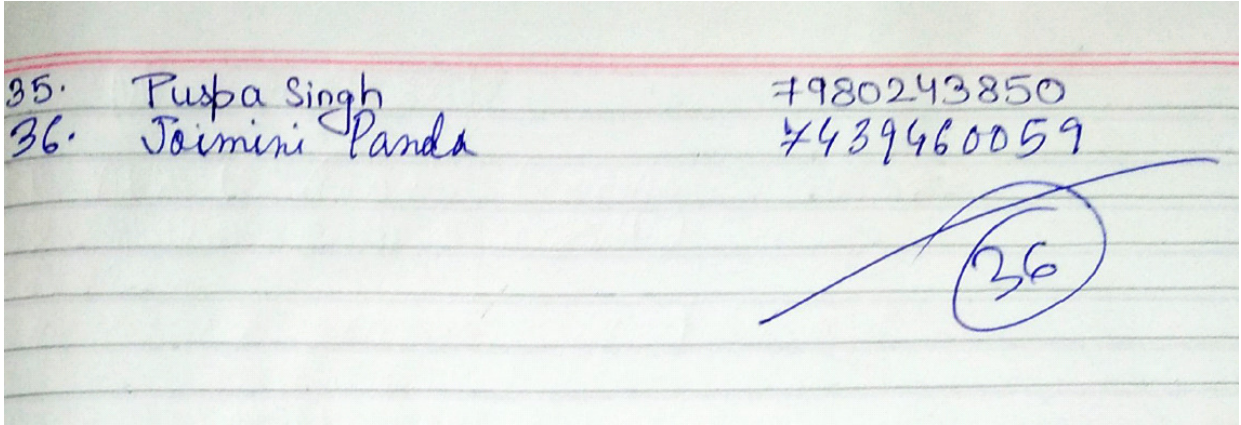 35. Puspa Singh 7980243850
36. Joimini Panda 7439460059
36